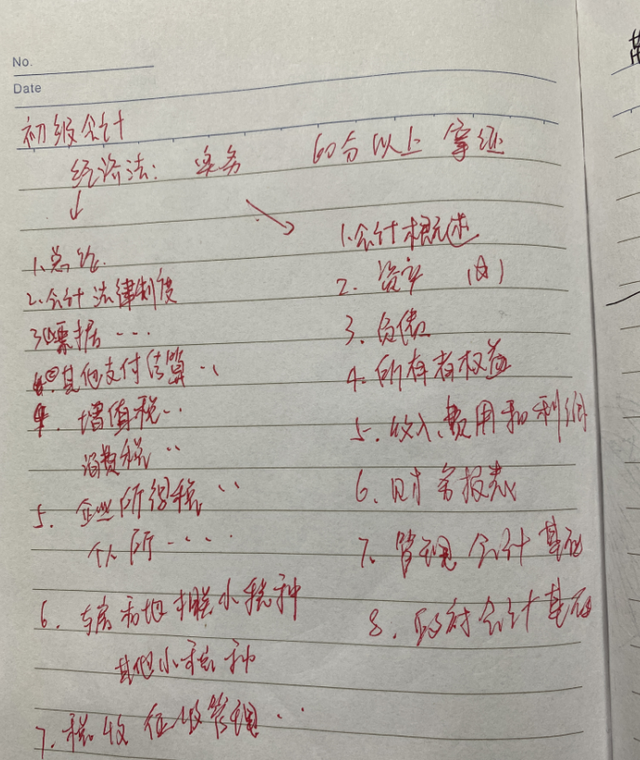 No.
Date
初级会计
经济法: 实务 60分以上 拿证
↓ ↘
1.总论.
2.会计法律制度
3①票据···
②其他支付结算··
4. 增值税··
消费税··
5. 企业所得税··
个人所····
6. 与房和地相关小税种
其他小税种
7.税收征收管理··
1.会计概述
2. 资产 (大)
3.负债
4.所有者权益
5.收入、费用和利润
6、财务报表
7. 管理会计基础
8.政府会计基础